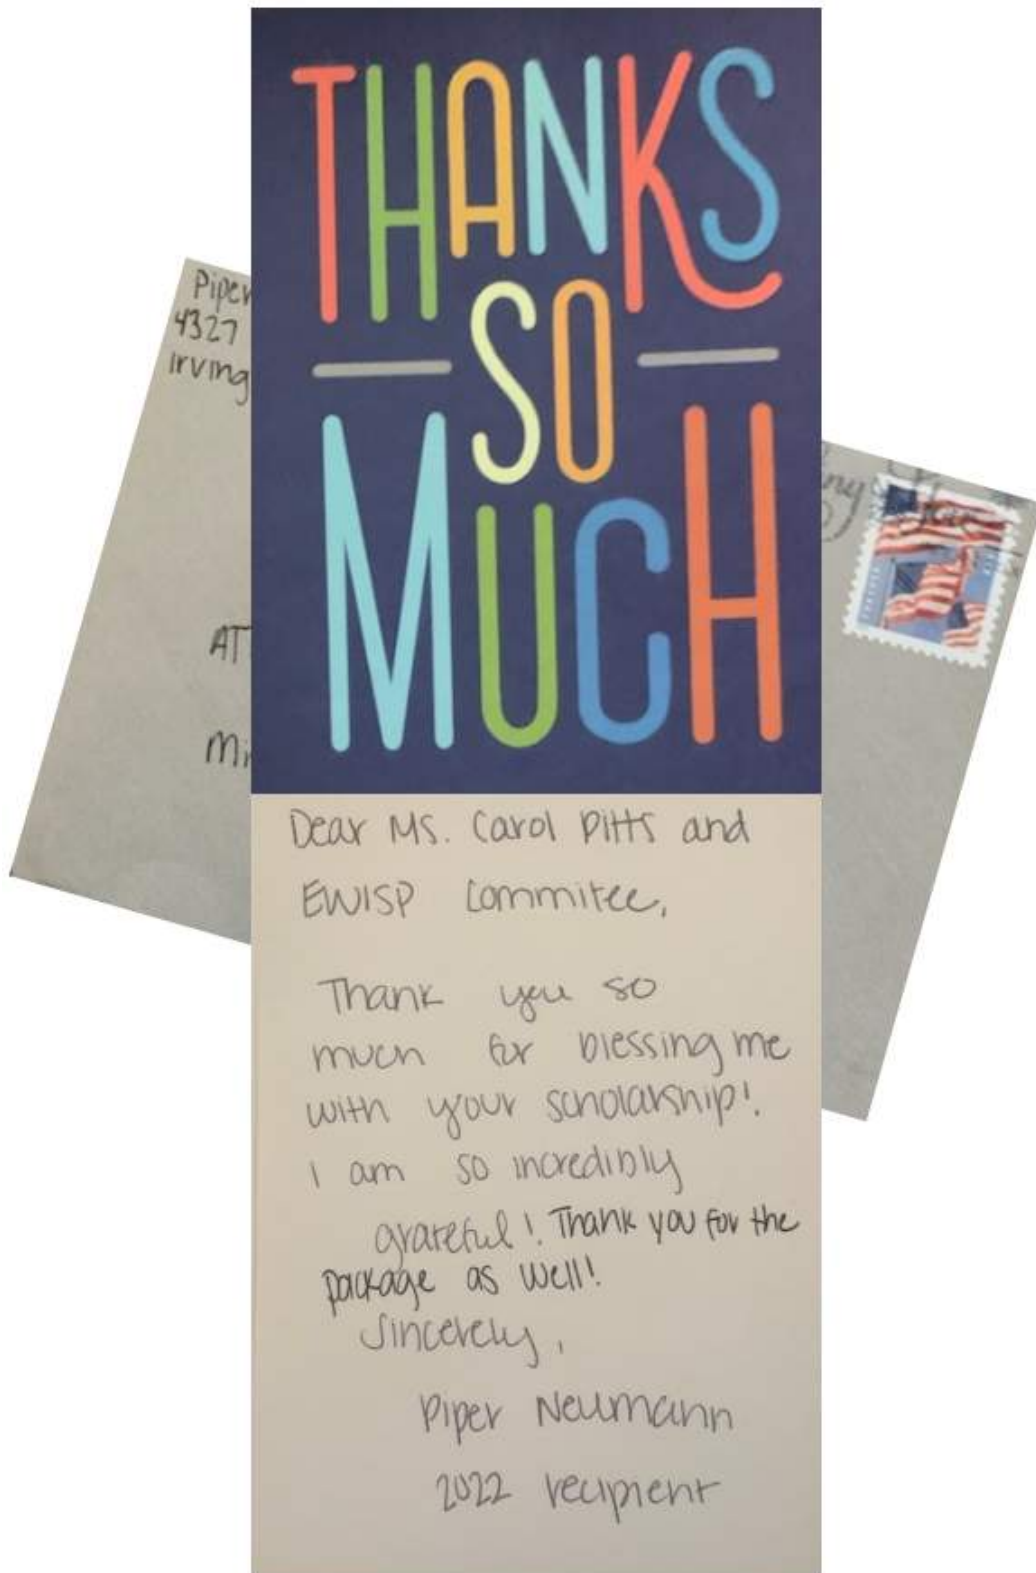 THANKS
SO
MUCH
Piper
4327
Irving
AT
Mi
Dear Ms. Carol Pitts and
EWISP Commitee,
Thank you so
much for blessing me
with your scholarship!
I am so incredibly
grateful! Thank you for the
package as well!
Sincerely,
Piper Neumann
2022 recipient